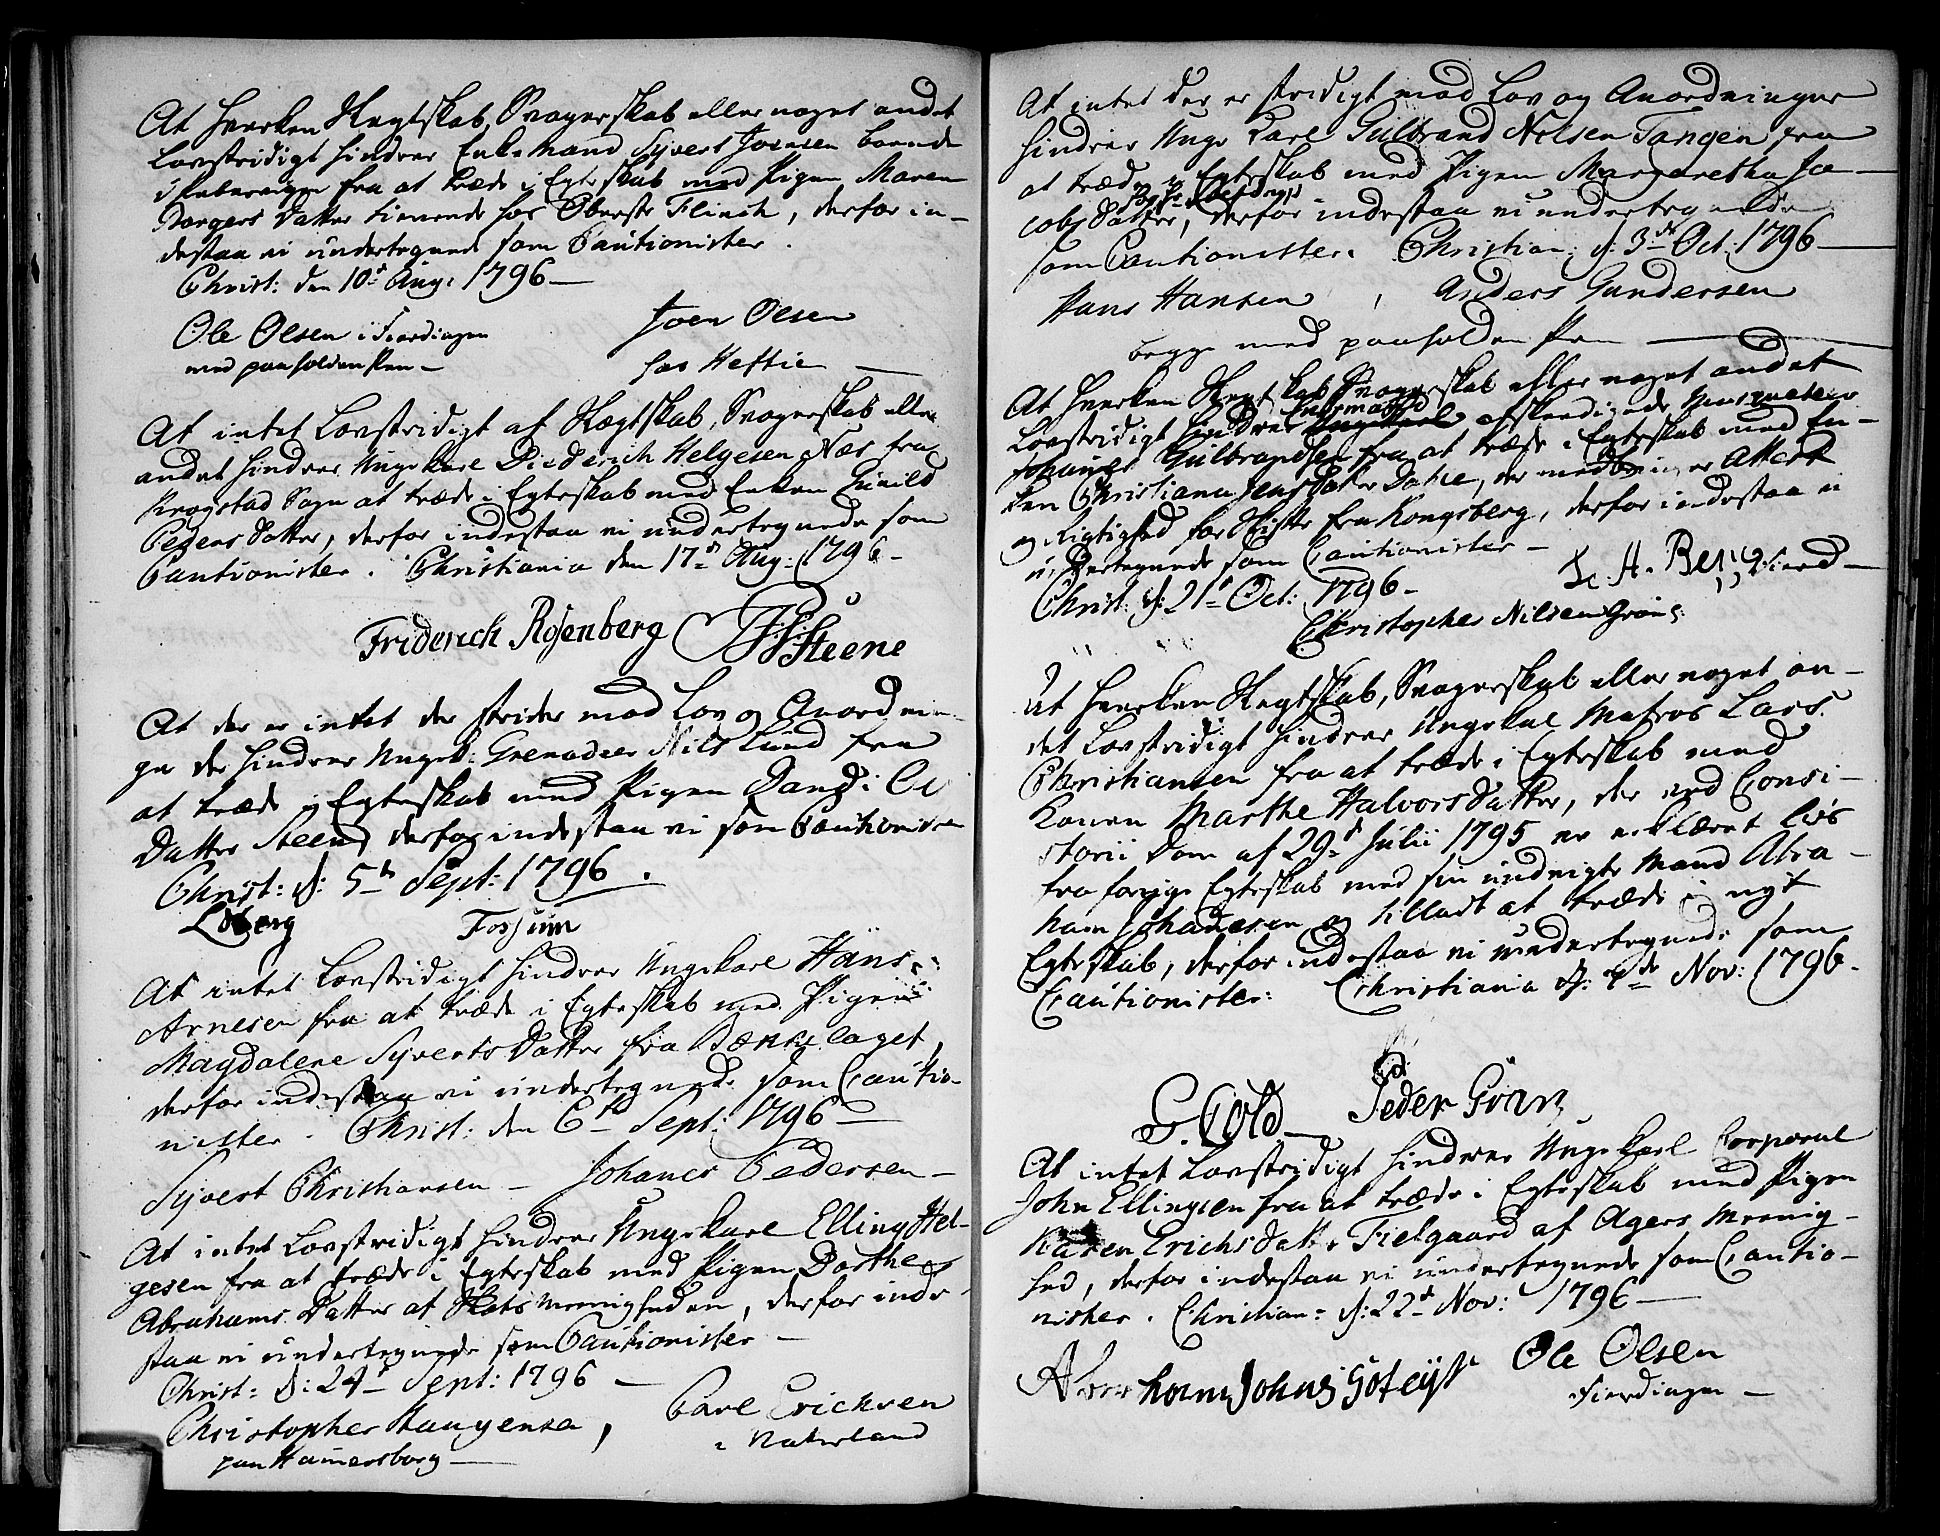 At hverken Slægtskab, Svogerskab eller noget andet
Lovstridigt hindrer Enkemand Syvert Joensen boende
i fra at træde i Egteskab med Pigen Maren
Datter tienende hos Oberste Flinch, derfor in-
destaa vi undertegnede som Cautionister.
Christ: den 10d Aug: 1796
Ole Olsen i Fierdingen
med paaholden Pen
Joen Olsen
hos Heftie
At intet Lovstridigt af Slægtskab, Svogerskab eller
andet hindrer Ungekarl Diederich Helgesen Næs fra
Kragstad Sogn at træde i Egteskab med Enken Gunild
Peders Datter, derfor indestaa vi undertegnede som
Cautionister. Christiania den 17d Aug: 1796
Friderich Rosenberg Steene
At der er intet der strider mod Lov og Anordnin-
ger der hindrer Ungek: Grenadeer Nils Lund fra
at træde i Egteskab med Pigen
Datter Steen, derfor indestaa vi som Cautionister
Christ: d: 5te Sept: 1796.
Loberg Fossum
At intet Lovstridigt hindrer Ungekarl Hans
Arnesen fra at træde i Egteskab med Pigen
Magdalene Syverts Datter fra Bækkelaget,
derfor indestaa vi undertegnede som Cautio-
nister. Christ: den 6te Sept: 1796
Syvert Christiansen Johanes Pedersen
At intet Lovstridigt hindrer Ungekarl Elling Hel-
gesen fra at træde i Egteskab med Pigen Dorthe
Abrahams Datter af Slots Menigheden, derfor inde-
staa vi undertegnede som Cautionister
Christ: d: 24d Sept: 1796
Christopher Haugensen,
paa Hamersborg
Carl Erichsen
i Vaterland
At intet der er stridigt mod Lov og Anordninger
hindrer Unge Karl Gulbrand Nelsen Tangen fra
at træde i Egteskab med Pigen Margaretha Ja-
cobs Datter, derfor indestaa vi undertegnede
som Cautionister. Christian: d: 3de Oct: 1796
Hans Hansen, Anders Gundersen
begge med paaholden Pen
At hverken Slægtskab, Svogerskab eller noget andet
Lovstridigt hindrer Enkemand afskedigede Musqueteer
Johannes Gulbrandsen fra at træde i Egteskab med En-
ken Christiana Jens Datter, der medbringer Attest
og Rigtighed for Skifte fra Kongsberg, derfor indestaa vi
undertegnede som Cautionister
Christ: d: 21d Oct: 1796.
Christopher Nilsen Grøn
At hverken Slægtskab, Svogerskab eller noget an-
det Lovstridigt hindrer Ungekal Matros Lars
Christiansen fra at træde i Egteskab med
Konen Marthe Halvors Datter, der ved Consi-
storii Dom af 29d Julii 1795 er erklæret løs
fra forrige Egteskab med sin undvigte Mand Abra-
ham Johannesen og tilladt at træde i nyt
Egteskab, derfor indestaa vi undertegnede som
Cautionister: Christiania d: Nov: 1796.
G. Cold Peder Grøn
At intet Lovstridigt hindrer Ungekarl Corporal
John Ellingsen fra at træde i Egteskab med Pigen
Karen Erichs Datter Fielgaard af Agers Menig-
hed, derfor indestaa vi undertegnede som Cautio-
nister. Christian: d: 22d Nov: 1796
Ole Olsen
Fierdingen